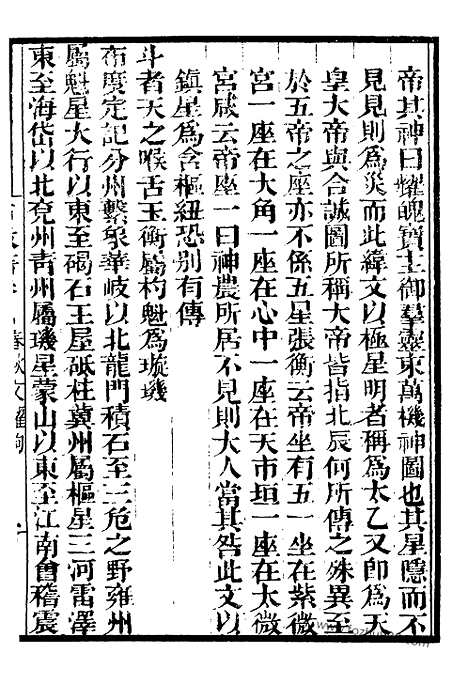 帝其神曰耀魄寶主御羣靈秉萬機神圖也其星隱而不
見見則爲災而此緯文以極星明者稱爲太乙又卽爲天
皇大帝與合誠圖所稱大帝皆指北辰何所傳之殊異至
於五帝之座亦不係五星張衡云帝坐有五一坐在紫微
宮一座在大角一座在心中一座在天市垣一座在太微
宮咸云帝座一曰神農所居不見則大人當其咎此文以
鎮星爲含樞紐恐别有傳
斗者天之喉舌玉衡屬杓魁爲璇璣
布度定記分州繫象華岐以北龍門積石至三危之野雍州
屬魁星大行以東至碣石王屋砥柱冀州屬樞星三河雷澤
東至海岱以北兗州青州屬璣星蒙山以東至江南會稽震
春秋文耀鉤